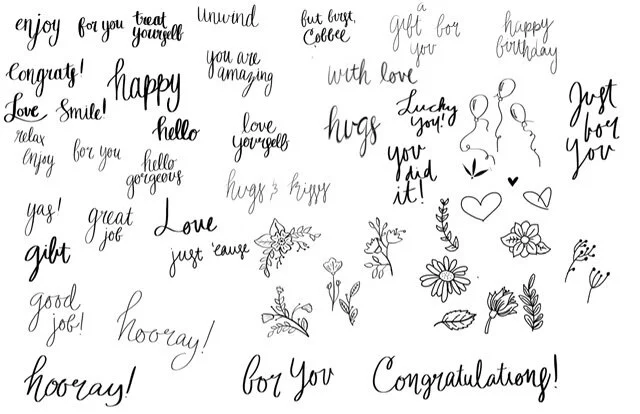 enjoy
for you
treat
yourself
Unwind
but first,
Coffee
a
gift for
you
happy
birthday
Congrats!
happy
you are
amazing
with love
Love
Smile!
hello
love
yourself
hugs
Lucky
You!
Just
for
you
relax
Enjoy
for you
hello
gorgeous
you
did
it!
hugs & kisses
yas!
great
job
Love
just 'cause
gift
good
job!
hooray!
hooray!
for You
Congratulations!